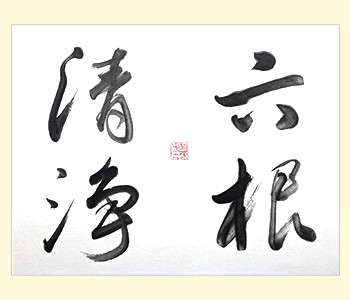 六根
清浄